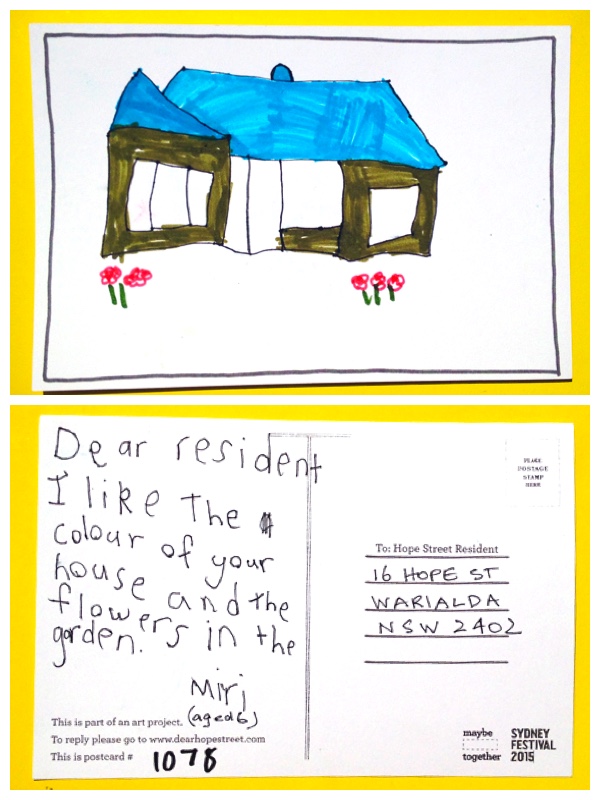 Dear resident
I like The
colour of your
house and the
flowers in the
garden.
Miri
(aged 6)
This is part of an art project.
To reply please go to www.dearhopestreet.com
This is postcard # 1078
PLACE
POSTAGE
STAMP
HERE
To: Hope Street Resident
16 HOPE ST
WARIALDA
NSW 2402
maybe
together
SYDNEY
FESTIVAL
2015